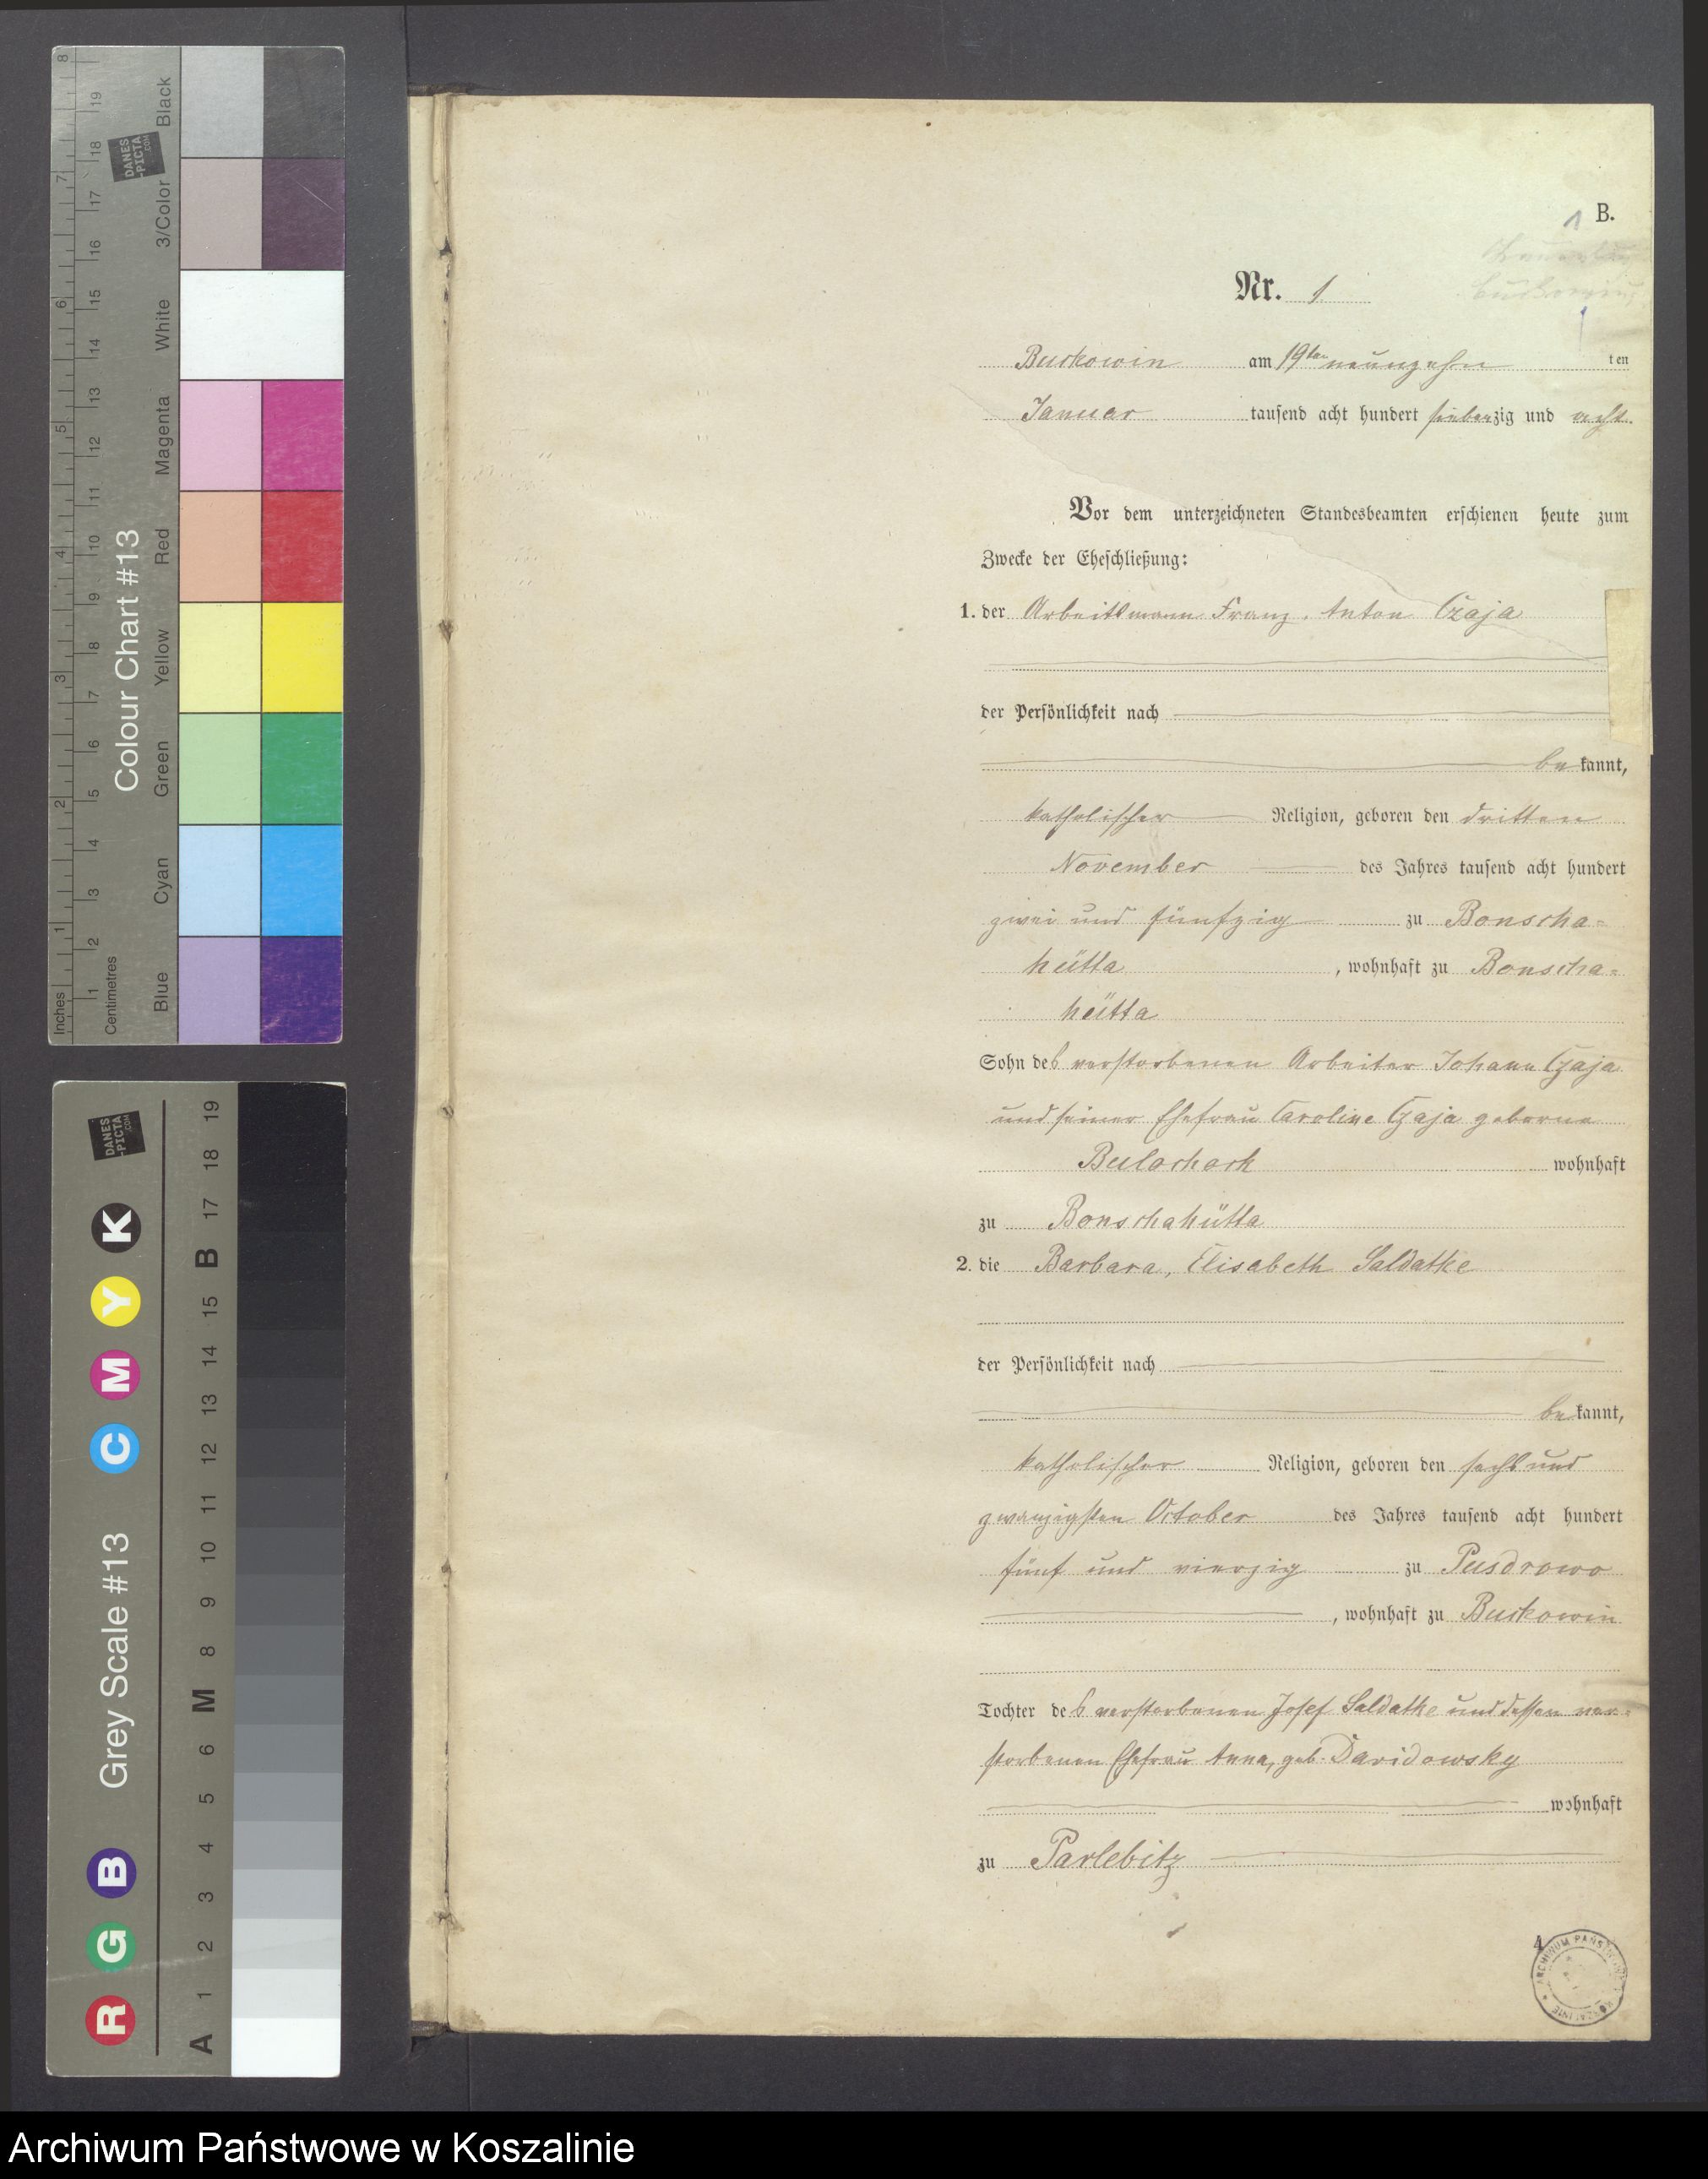 B.
1
Nr. 1
Buckowin am 19ten neunzehn ten
Januar tausend acht hundert siebenzig und acht
Vor dem unterzeichneten Standesbeamten erschienen heute zum
Zwecke der Eheschließung:
1. der Arbeitsmann Franz, Anton Czaja
der Persönlichkeit nach
bekannt,
katholischer Religion, geboren den dritten
November des Jahres tausend acht hundert
zwei und fünfzig zu Bonscha-
hütta, wohnhaft zu Bonscha-
hütta
Sohn des verstorbenen Arbeiter Johann Czaja
und seiner Ehefrau Caroline Czaja geborne
wohnhaft
zu Bonschahütta
2. die Barbara, Elisabeth Saldatke
der Persönlichkeit nach
bekannt,
katholischer Religion, geboren den sechs und
zwanzigsten October des Jahres tausend acht hundert
fünf und vierzig zu Pusdrowo
, wohnhaft zu Buckowin
Tochter des verstorbenen Josef Saldatke und dessen ver-
storbenen Ehefrau Anna, geb. Davidowsky
wohnhaft
zu Parlebitz
1
ARCHIWUM PAŃSTWOWE
Inches
1 2 3 4 5 6 7 8
Centimetres
1 2 3 4 5 6 7 8 9 10 11 12 13 14 15 16 17 18 19
Colour Chart #13
Blue Cyan Green Yellow Red Magenta White 3/Color Black
DANES
-PICTA
.COM
Grey Scale #13
R G B C M Y K
A 1 2 3 4 5 6 M 8 9 10 11 12 13 14 15 B 17 18 19
DANES
-PICTA
.COM
Archiwum Państwowe w Koszalinie